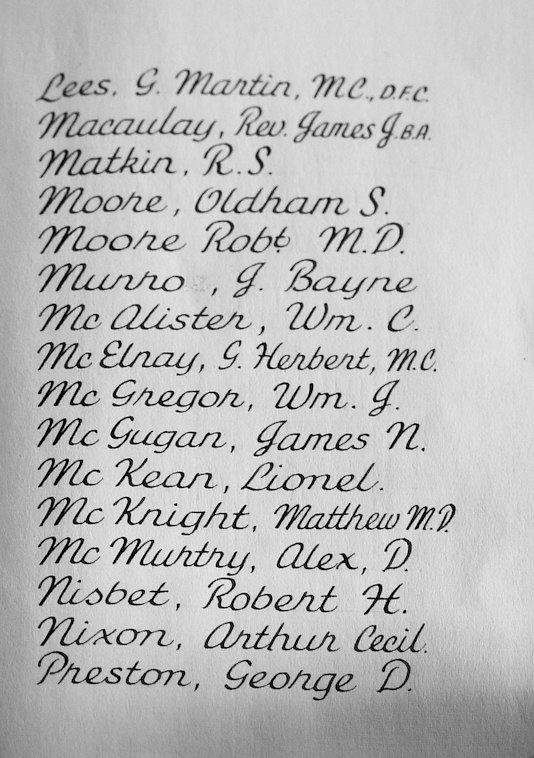 Lees, G. Martin, M.C., D.F.C.
Macaulay, Rev. James J. B.A.
Matkin, R.S.
Moore, Oldham S.
Moore Robt M.D.
Munro , J. Bayne
Mc Alister, Wm. C.
Mc Elnay, G. Herbert, M.C.
Mc Gregor, Wm. J.
Mc Gugan, James N.
Mc Kean, Lionel.
Mc Knight, Matthew M.D.
Mc Murtry, Alex, D.
Nisbet, Robert H.
Nixon, Arthur Cecil.
Preston, George D.